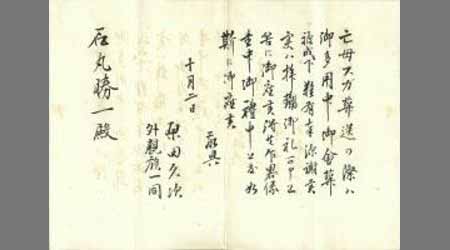 亡母スガ葬送の際ハ
御多用中御会葬
被成下難有奉深謝候
実ハ拝趨御礼可申上
筈に御座候得共乍略儀
書中御禮申上度如
斯に御座候
敬具
十月二日
田久次
外親族一同
石丸勝一殿